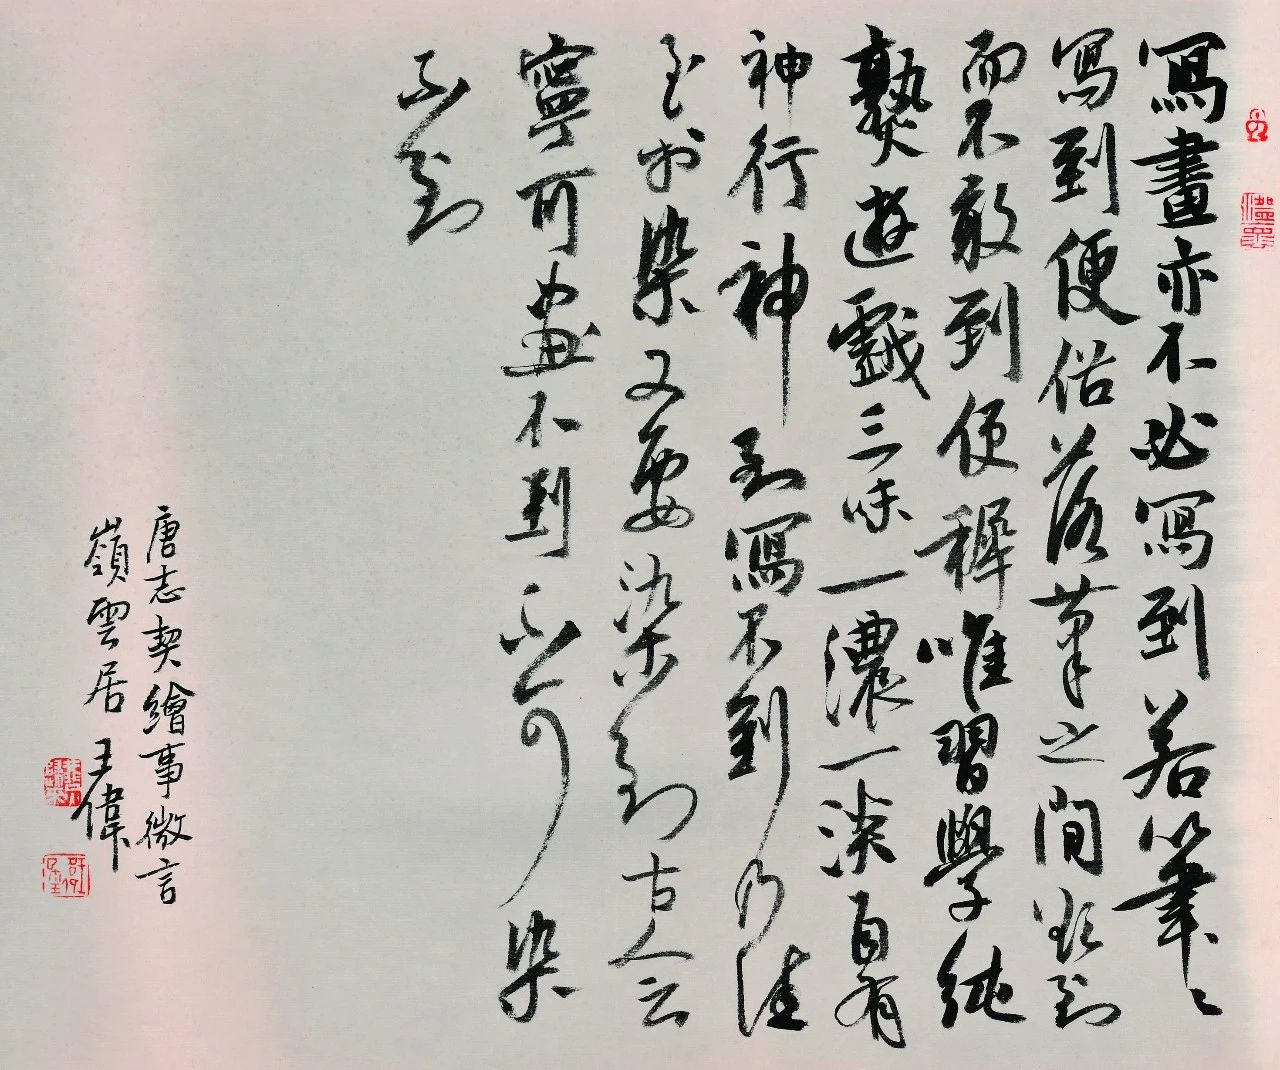 寫畫亦不必寫到若筆〻
寫到便俗落筆之間欲到
而不敢到便稺唯習學純
熟遊戲三昧一濃一淡自有
神行神到寫不到乃佳
至於染又要染到古人云
寧可畫不到不可染
不到
唐志契繪事微言
嶺雲居王偉